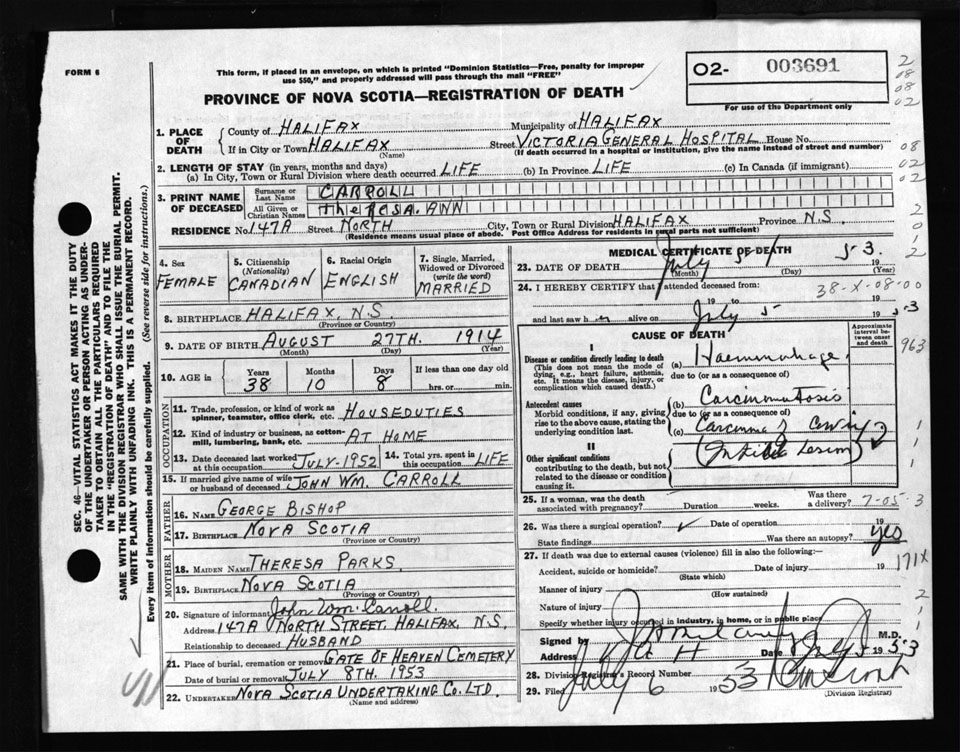 FORM 6
This form, if placed in an envelope, on which is printed "Dominion Statistics—Free, penalty for improper
use $50," and properly addressed will pass through the mail "FREE"
02- 003691
For use of the Department only
PROVINCE OF NOVA SCOTIA—REGISTRATION OF DEATH
1. PLACE OF DEATH
County of HALIFAX Municipality of HALIFAX
If in City or Town HALIFAX Street VICTORIA GENERAL HOSPITAL House No.
(Name) (If death occurred in a hospital or institution, give the name instead of street and number)
2. LENGTH OF STAY (in years, months and days)
(a) In City, Town or Rural Division where death occurred LIFE (b) In Province LIFE (c) In Canada (if immigrant)
3. PRINT NAME OF DECEASED
Surname or Last Name CARROLL
All Given or Christian Names THERESA. ANN
RESIDENCE No. 147A Street NORTH City, Town or Rural Division HALIFAX Province N.S.
(Residence means usual place of abode. Post Office Address for residents in rural parts not sufficient)
4. Sex FEMALE
5. Citizenship (Nationality) CANADIAN
6. Racial Origin ENGLISH
7. Single, Married, Widowed or Divorced (write the word) MARRIED
8. BIRTHPLACE HALIFAX, N.S.
(Province or Country)
9. DATE OF BIRTH AUGUST 27TH. 1914
(Month) (Day) (Year)
10. AGE in Years 38 Months 10 Days 8 If less than one day hrs. or min.
OCCUPATION
11. Trade, profession, or kind of work as spinner, teamster, office clerk, etc. HOUSEDUTIES
12. Kind of industry or business, as cotton-mill, lumbering, bank, etc. AT HOME
13. Date deceased last worked at this occupation JULY-1952 14. Total yrs. spent in this occupation LIFE
15. If married give name of wife or husband of deceased JOHN WM. CARROLL
FATHER
16. NAME GEORGE BISHOP
17. BIRTHPLACE NOVA SCOTIA
(Province or Country)
MOTHER
18. MAIDEN NAME THERESA PARKS
19. BIRTHPLACE NOVA SCOTIA
(Province or Country)
20. Signature of informant John Wm. Carroll.
Address 147A NORTH STREET, HALIFAX, N.S.
Relationship to deceased HUSBAND
21. Place of burial, cremation or removal GATE OF HEAVEN CEMETERY
Date of burial or removal JULY 8TH. 1953
22. UNDERTAKER NOVA SCOTIA UNDERTAKING CO. LTD.
(Name and address)
MEDICAL CERTIFICATE OF DEATH
23. DATE OF DEATH July 5 53
(Month) (Day) (Year)
24. I HEREBY CERTIFY that I attended deceased from:
38-X-08-00
19 to July 5 53
and last saw h alive on 19
CAUSE OF DEATH
Approximate interval between onset and death
I
Disease or condition directly leading to death
(This does not mean the mode of dying, e.g., heart failure, asthenia, etc. It means the disease, injury, or complication which caused death.)
(a) Haemorrhage
due to (or as a consequence of)
Antecedent causes
Morbid conditions, if any, giving rise to the above cause, stating the underlying condition last.
(b) Carcinomatosis
due to (or as a consequence of)
(c) Carcinoma of Cervix
II
Other significant conditions
contributing to the death, but not related to the disease or condition causing it.
25. If a woman, was the death associated with pregnancy? Duration weeks. Was there a delivery? 7-05-3
26. Was there a surgical operation? ✓ Date of operation 19
State findings Was there an autopsy? yes
27. If death was due to external causes (violence) fill in also the following:—
Accident, suicide or homicide? Date of injury 19 171X
(State which)
Manner of injury
(How sustained)
Nature of injury
Specify whether injury occurred in industry, in home, or in public place
Signed by M.D.
Address Date July 5 1953
28. Division Registrar's Record Number
29. Filed July 6 1953
(Division Registrar)
SEC. 46—VITAL STATISTICS ACT MAKES IT THE DUTY
OF THE UNDERTAKER OR PERSON ACTING AS UNDER-
TAKER TO OBTAIN ALL THE PARTICULARS REQUIRED
IN THE "REGISTRATION OF DEATH" AND TO FILE THE
SAME WITH THE DIVISION REGISTRAR WHO SHALL ISSUE THE BURIAL PERMIT.
WRITE PLAINLY WITH UNFADING INK. THIS IS A PERMANENT RECORD.
Every item of information should be carefully supplied. (See reverse side for instructions.)
2
08
08
02
08
02
02
2
0
1
2
963
1
1
1
2
1
1